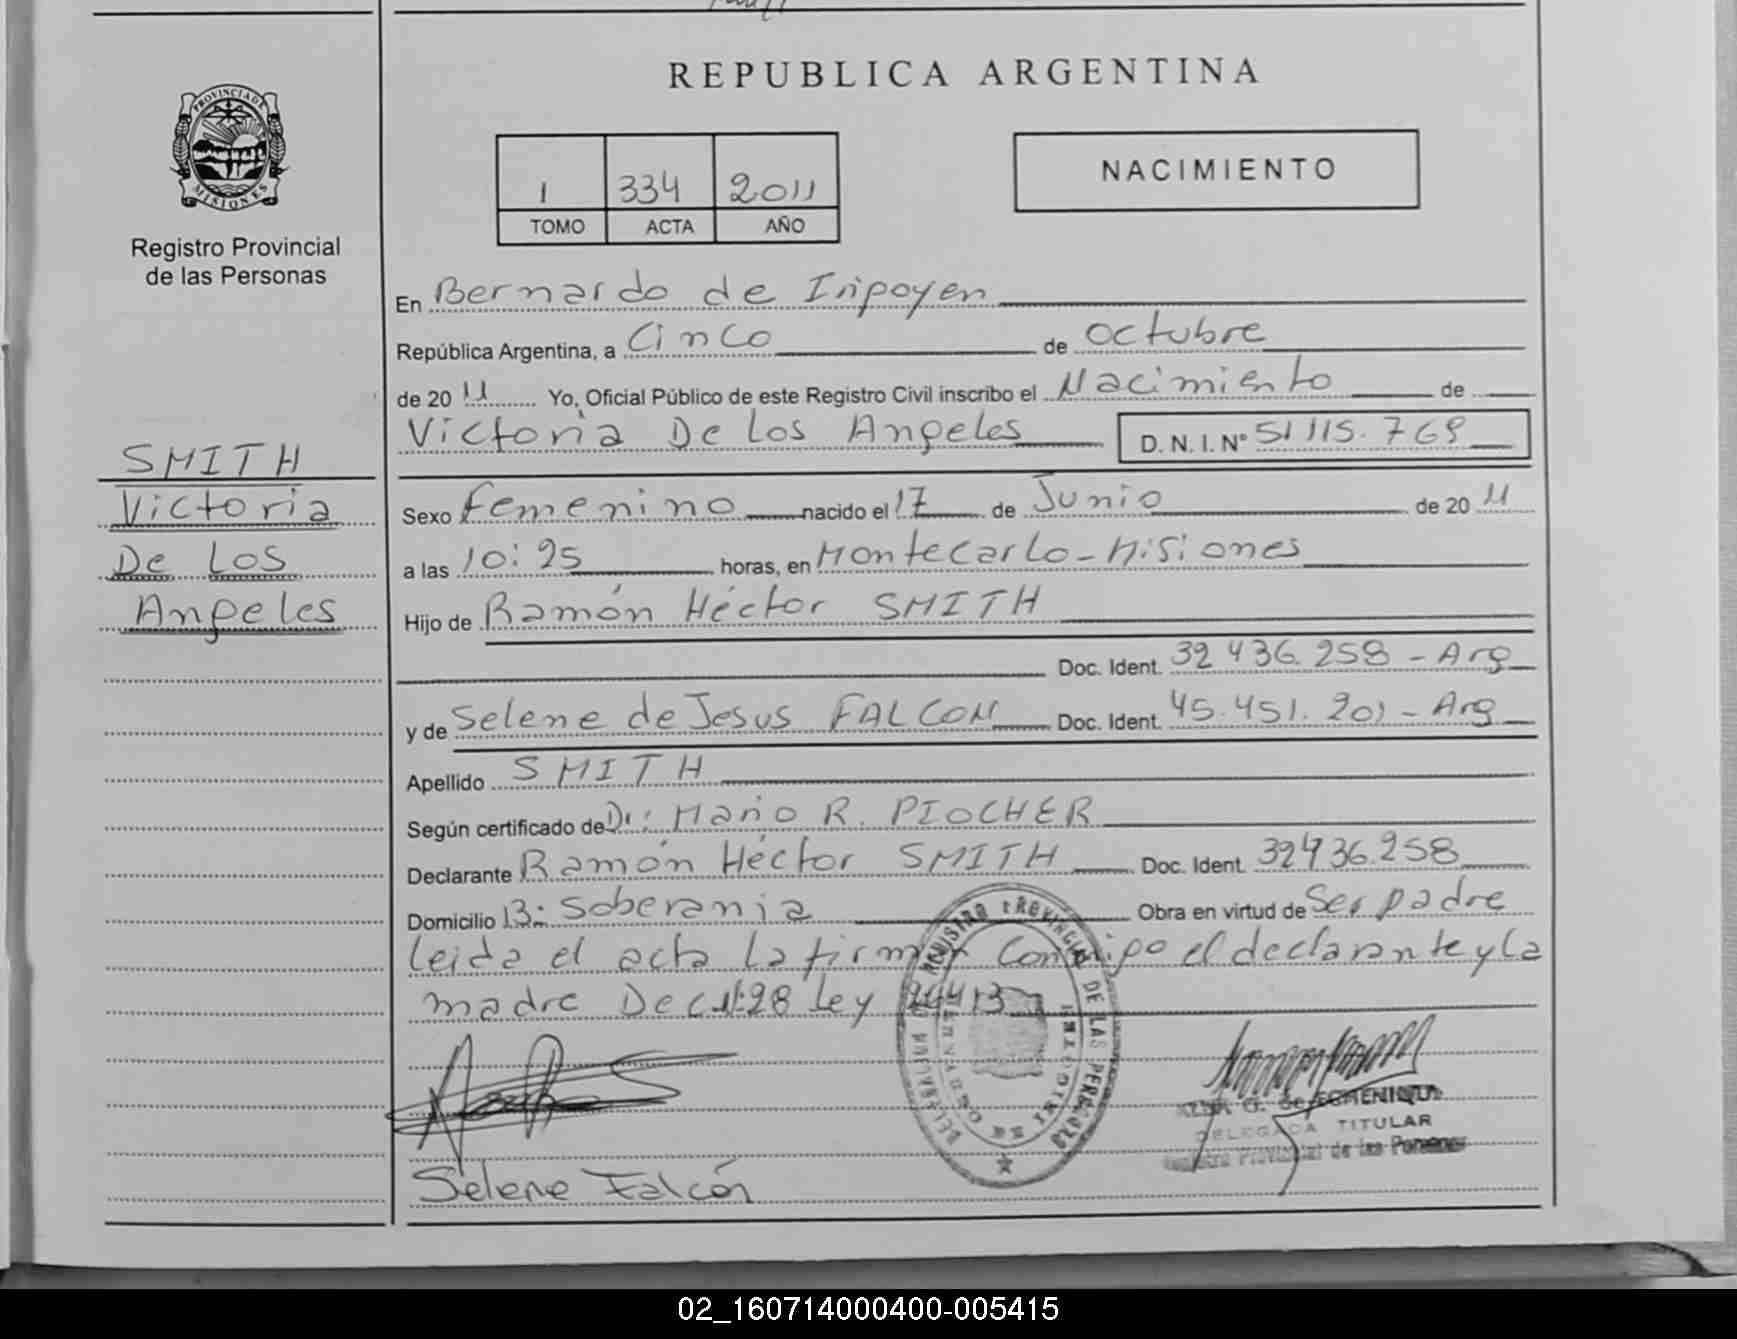 REPUBLICA ARGENTINA
PROVINCIA DE MISIONES
Registro Provincial
de las Personas
1 334 2011
TOMO ACTA AÑO
NACIMIENTO
En Bernardo de Iripoyen
República Argentina, a Cinco de octubre
de 2011 Yo, Oficial Público de este Registro Civil inscribo el Nacimiento de
Victoria De los Angeles D. N. I. Nº 51 115. 769
SMITH
Victoria
De Los
Angeles
Sexo femenino nacido el 17 de Junio de 2011
a las 10:25 horas, en Montecarlo - Misiones
Hijo de Ramón Héctor SMITH
Doc. Ident. 32 436. 258 - Arg
y de Selene de Jesus FALCON Doc. Ident. 45. 451. 201 - Arg
Apellido SMITH
Según certificado de Dr: Mario R. PIOCHER
Declarante Ramón Héctor SMITH Doc. Ident. 32436.258
Domicilio Bº Soberania Obra en virtud de Ser padre
leida el acta la firman Conmigo el declarante y la
madre Dec Nº 28 Ley 24413
DELEGADA TITULAR
Registro Provincial de las Personas
Selene Falcón
02_160714000400-005415